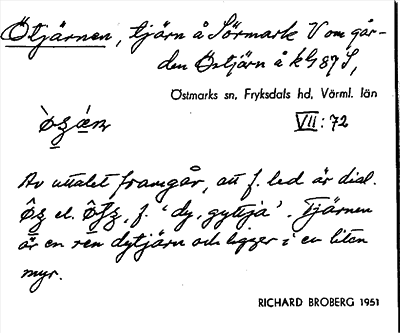 Östjärnen, tjärn å Sörmark V om går-
den Östjärn å kG 87 S,
Östmarks sn, Fryksdals hd, Värml. län
VII: 72
Av uttalet framgår, att f. led är dial.
el. f. 'dy, gyttja'. Tjärnen
är en ren dytjärn och ligger i en liten
myr.
RICHARD BROBERG 1951